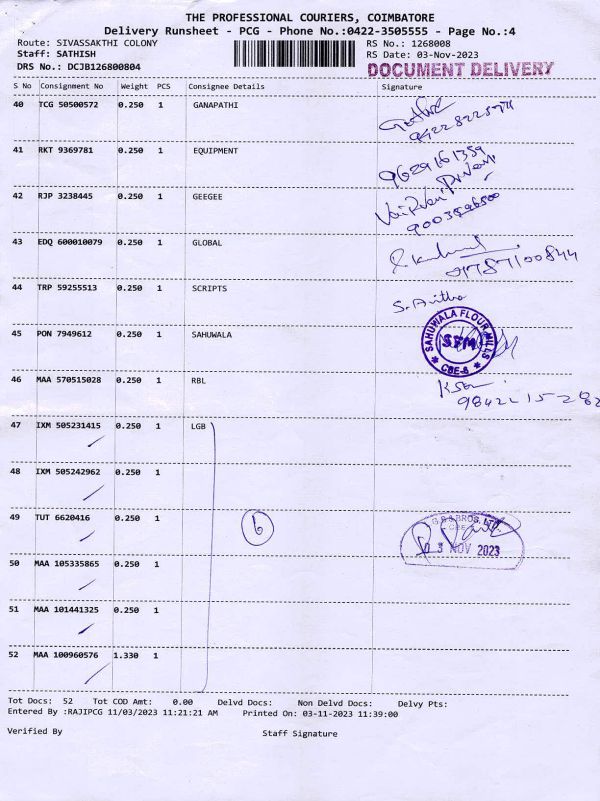 THE PROFESSIONAL COURIERS, COIMBATORE
Delivery Runsheet - PCG - Phone No.:0422-3505555 - Page No.:4
Route: SIVASSAKTHI COLONY RS No.: 1268008
Staff: SATHISH RS Date: 03-Nov-2023
DRS No.: DCJB126800804 DOCUMENT DELIVERY
S No Consignment No Weight PCS Consignee Details Signature
40 TCG 50500572 0.250 1 GANAPATHI
41 RKT 9369781 0.250 1 EQUIPMENT
9629161359
42 RJP 3238445 0.250 1 GEEGEE
43 EDQ 600010079 0.250 1 GLOBAL
9787100844
44 TRP 59255513 0.250 1 SCRIPTS
45 PON 7949612 0.250 1 SAHUWALA
SAHUWALA FLOUR MILLS
SFM
CBE-8
46 MAA 570515028 0.250 1 RBL
47 IXM 505231415 0.250 1 LGB
48 IXM 505242962 0.250 1
49 TUT 6620416 0.250 1 6
BROS. LTD.
03 NOV 2023
50 MAA 105335865 0.250 1
51 MAA 101441325 0.250 1
52 MAA 100960576 1.330 1
Tot Docs: 52 Tot COD Amt: 0.00 Delvd Docs: Non Delvd Docs: Delvy Pts:
Entered By :RAJIPCG 11/03/2023 11:21:21 AM Printed On: 03-11-2023 11:39:00
Verified By Staff Signature